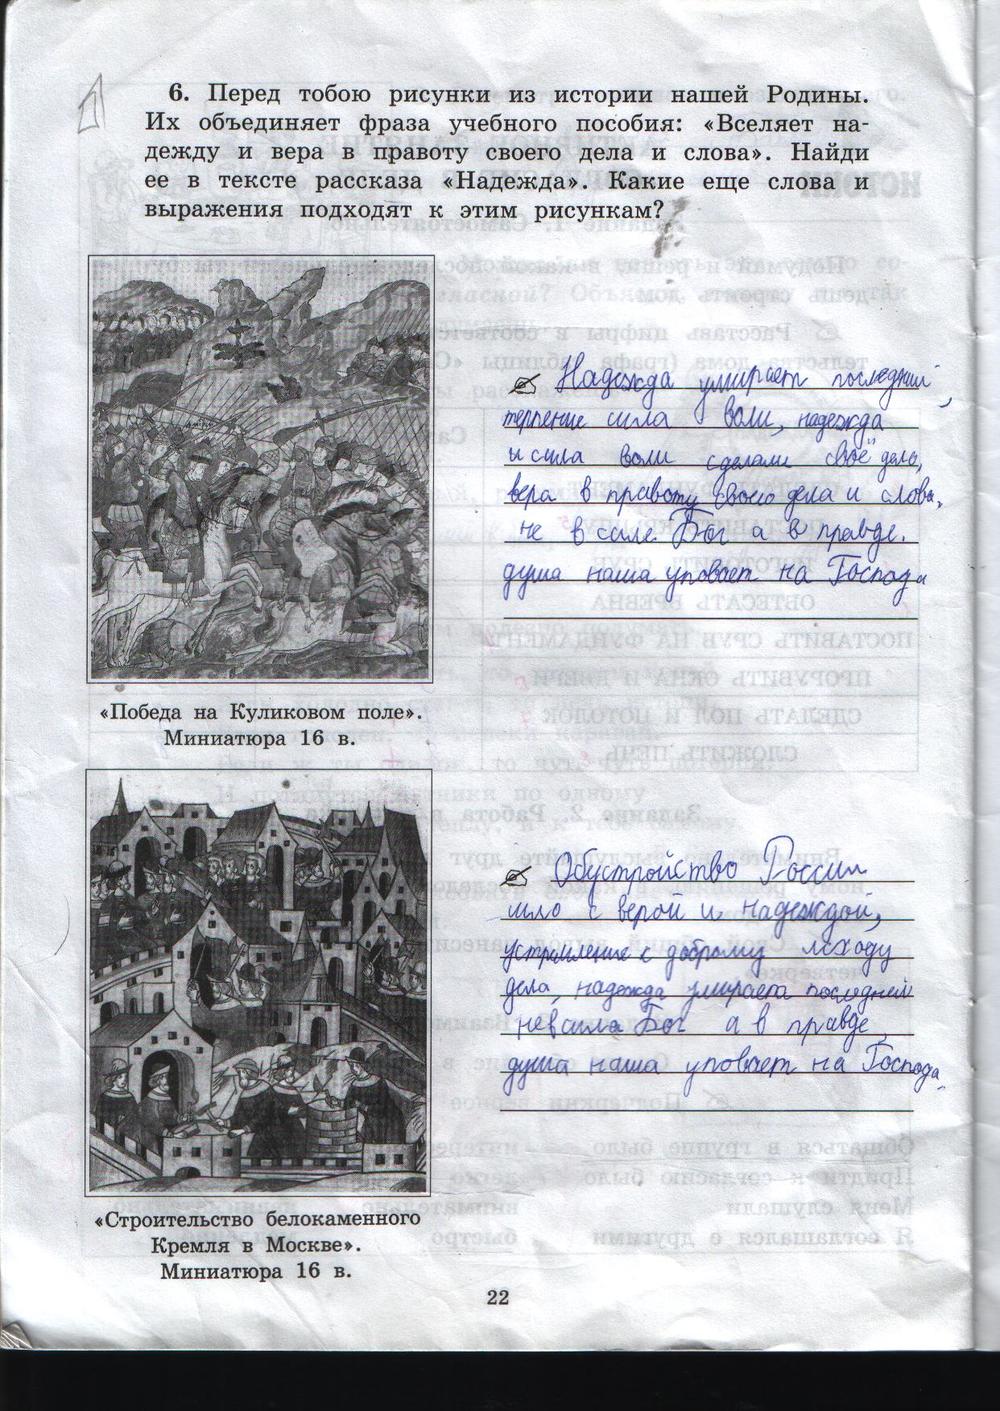 6. Перед тобою рисунки из истории нашей Родины.
Их объединяет фраза учебного пособия: «Вселяет на-
дежду и вера в правоту своего дела и слова». Найди
ее в тексте рассказа «Надежда». Какие еще слова и
выражения подходят к этим рисункам?
Надежда умирает последний,
терпение сила воли, надежда
и сила воли сделали своё дело,
вера в правоту своего дела и слова.
не в силе Бог а в правде.
душа наша уповает на Господа
«Победа на Куликовом поле».
Миниатюра 16 в.
Обустройство России
шло с верой и надеждой,
устремление к доброму исходу
дела, надежда умирает последней
не в сила Бог а в правде
душа наша уповает на Господа.
«Строительство белокаменного
Кремля в Москве».
Миниатюра 16 в.
22